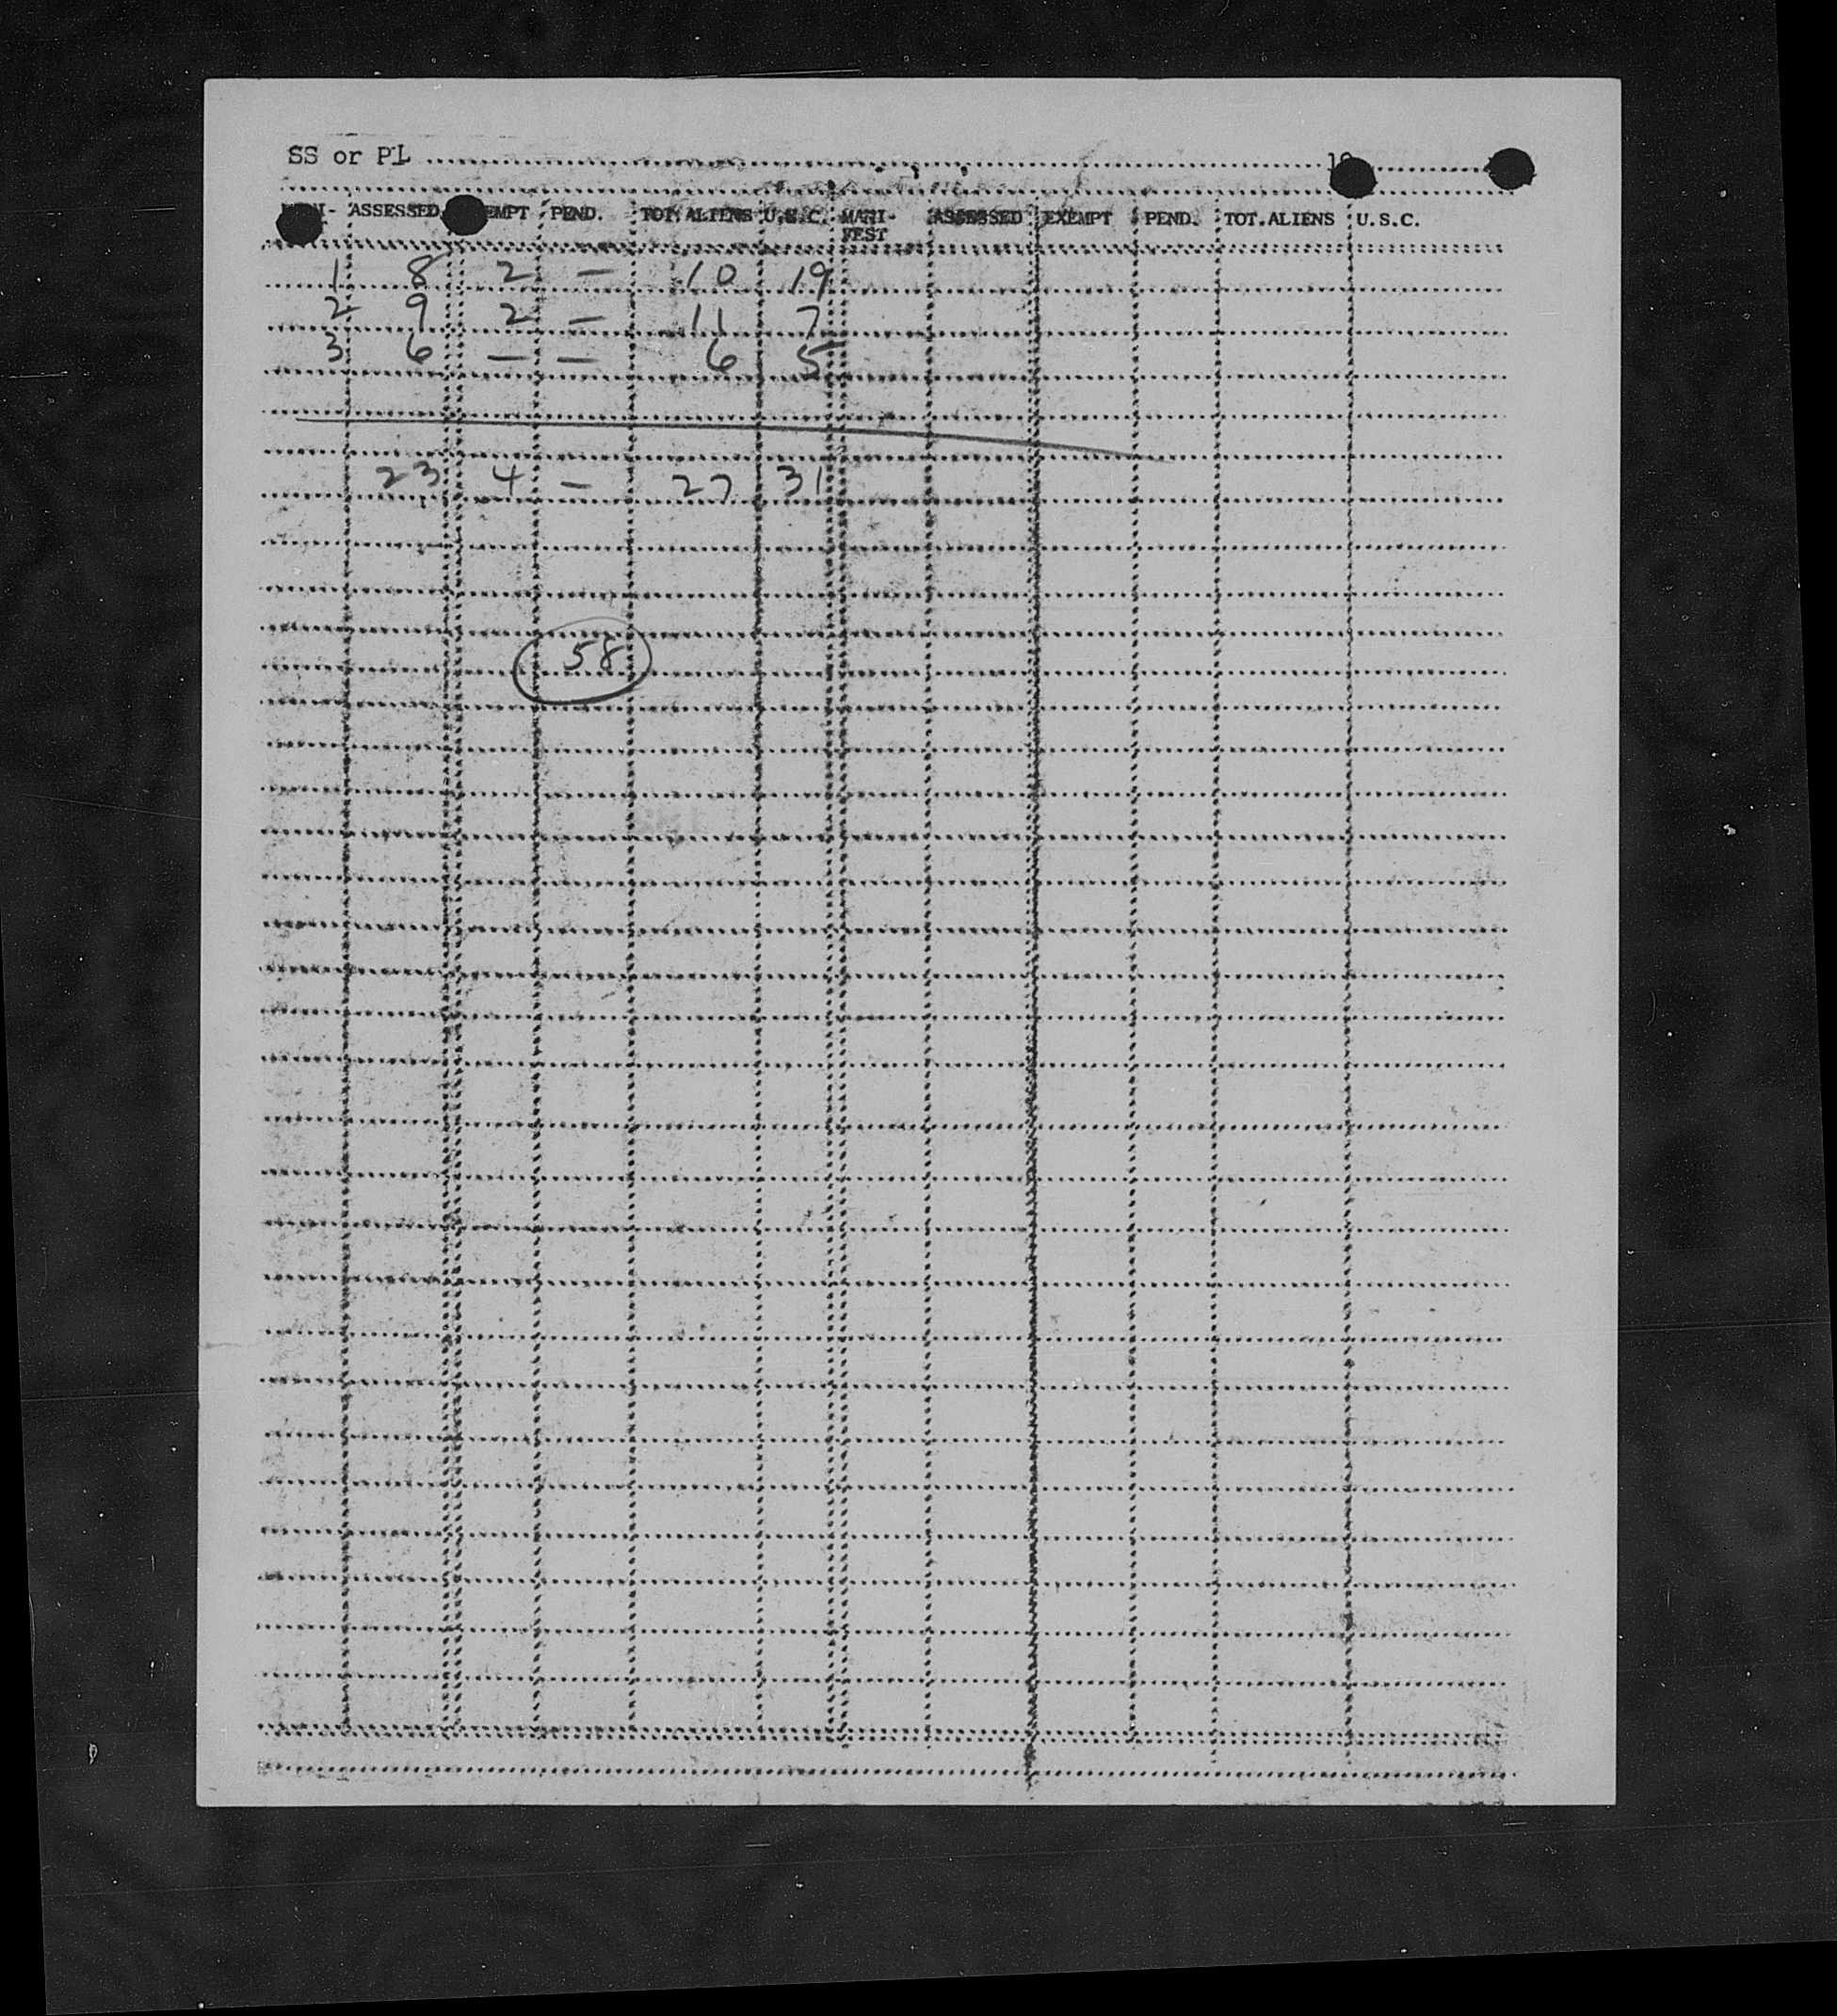 SS or PL
ASSESSED EMPT PEND. TOT. ALIENS U.S.C. MANI- ASSESSED EXEMPT PEND. TOT.ALIENS U.S.C.
FEST
1 8 2 — 10 19
2 9 2 — 11 7
3 6 — — 6 5
23 4 — 27 31
58